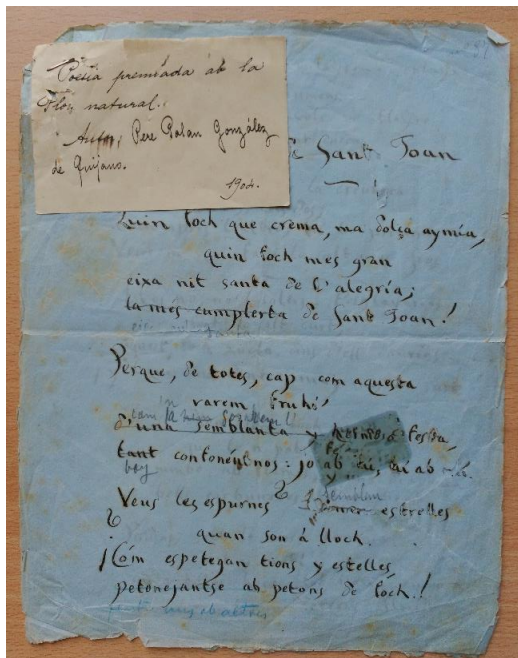 Poesia premiada ab la
Flor natural.
Autor, Pere Palau González
de Quijano.
1904.
Sant Joan
Quin foch que crema, ma dolça aymía,
quin foch mes gran
eixa nit santa de l'alegría;
la mes cumplerta de Sant Joan!
Perque, de totes, cap com aquesta
varem fruhí
d'una semblanta y hermosa festa,
tant confonéntnos: jo ab tu, tu ab mí.
boy
Veus les espurnes? semblan
estrelles
quan son á lloch.
¡Cóm espetegan tions y estelles
petonejantse ab petons de foch!